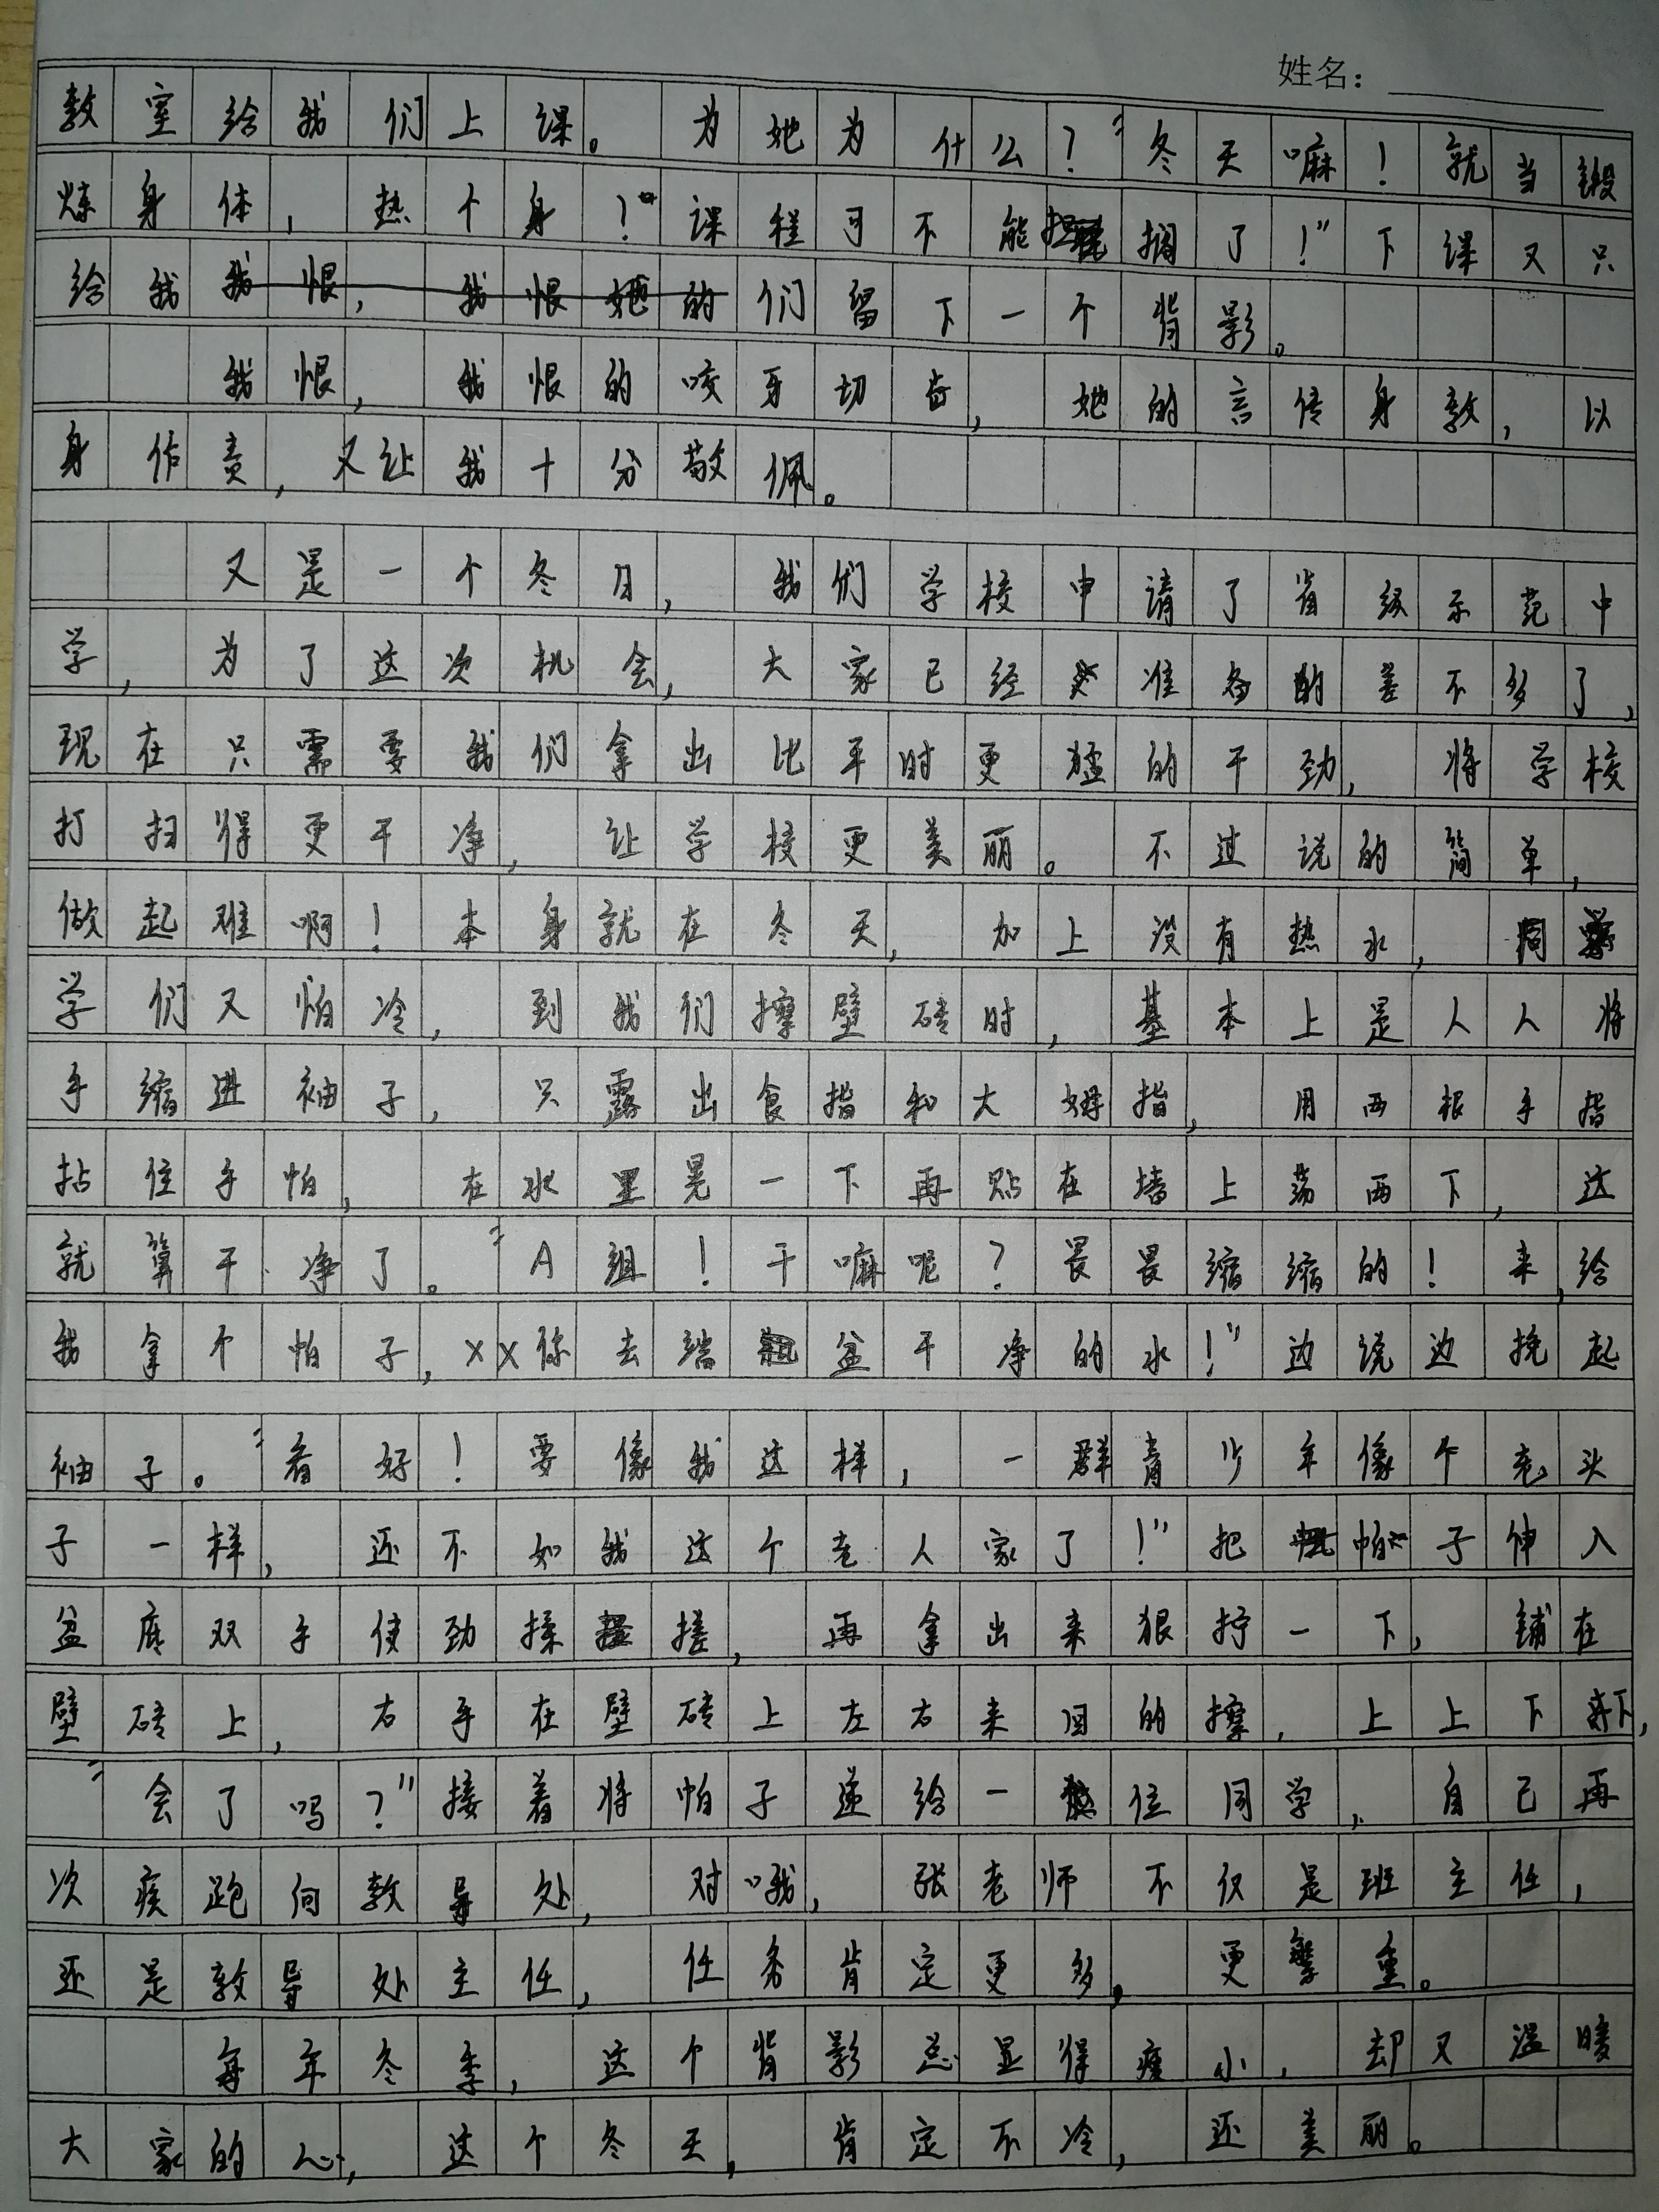 姓名：
教室给我们上课。为她为什么？“冬天嘛！就当锻
炼身体，热个身！课程可不能耽搁了！”下课又只
给我我恨，我恨她的们留下一个背影。
我恨，我恨的咬牙切齿，她的言传身教，以
身作责，又让我十分敬佩。
又是一个冬日，我们学校申请了省级示范中
学，为了这次机会，大家已经准备的差不多了，
现在只需要我们拿出比平时更猛的干劲，将学校
打扫得更干净，让学校更美丽。不过说的简单，
做起难啊！本身就在冬天，加上没有热水，同
学们又怕冷，到我们擦壁砖时，基本上是人人将
手缩进袖子，只露出食指和大姆指，用两根手指
拈住手帕，在水里晃一下再贴在墙上荡两下，这
就算干净了。“A组！干嘛呢？畏畏缩缩的！来，给
我拿个帕子，××你去端盆干净的水！”边说边挽起
袖子。“看好！要像我这样，一群青少年像个老头
子一样，还不如我这个老人家了！”把帕子伸入
盆底双手使劲揉搓，再拿出来狠拧一下，铺在
壁砖上，右手在壁砖上左右来回的擦，上上下下，
“会了吗？”接着将帕子递给一位同学，自己再
次疾跑向教导处，对哦，张老师不仅是班主任，
还是教导处主任，任务肯定更多，更繁重。
每年冬季，这个背影总显得瘦小，却又温暖
大家的心，这个冬天，肯定不冷，还美丽。